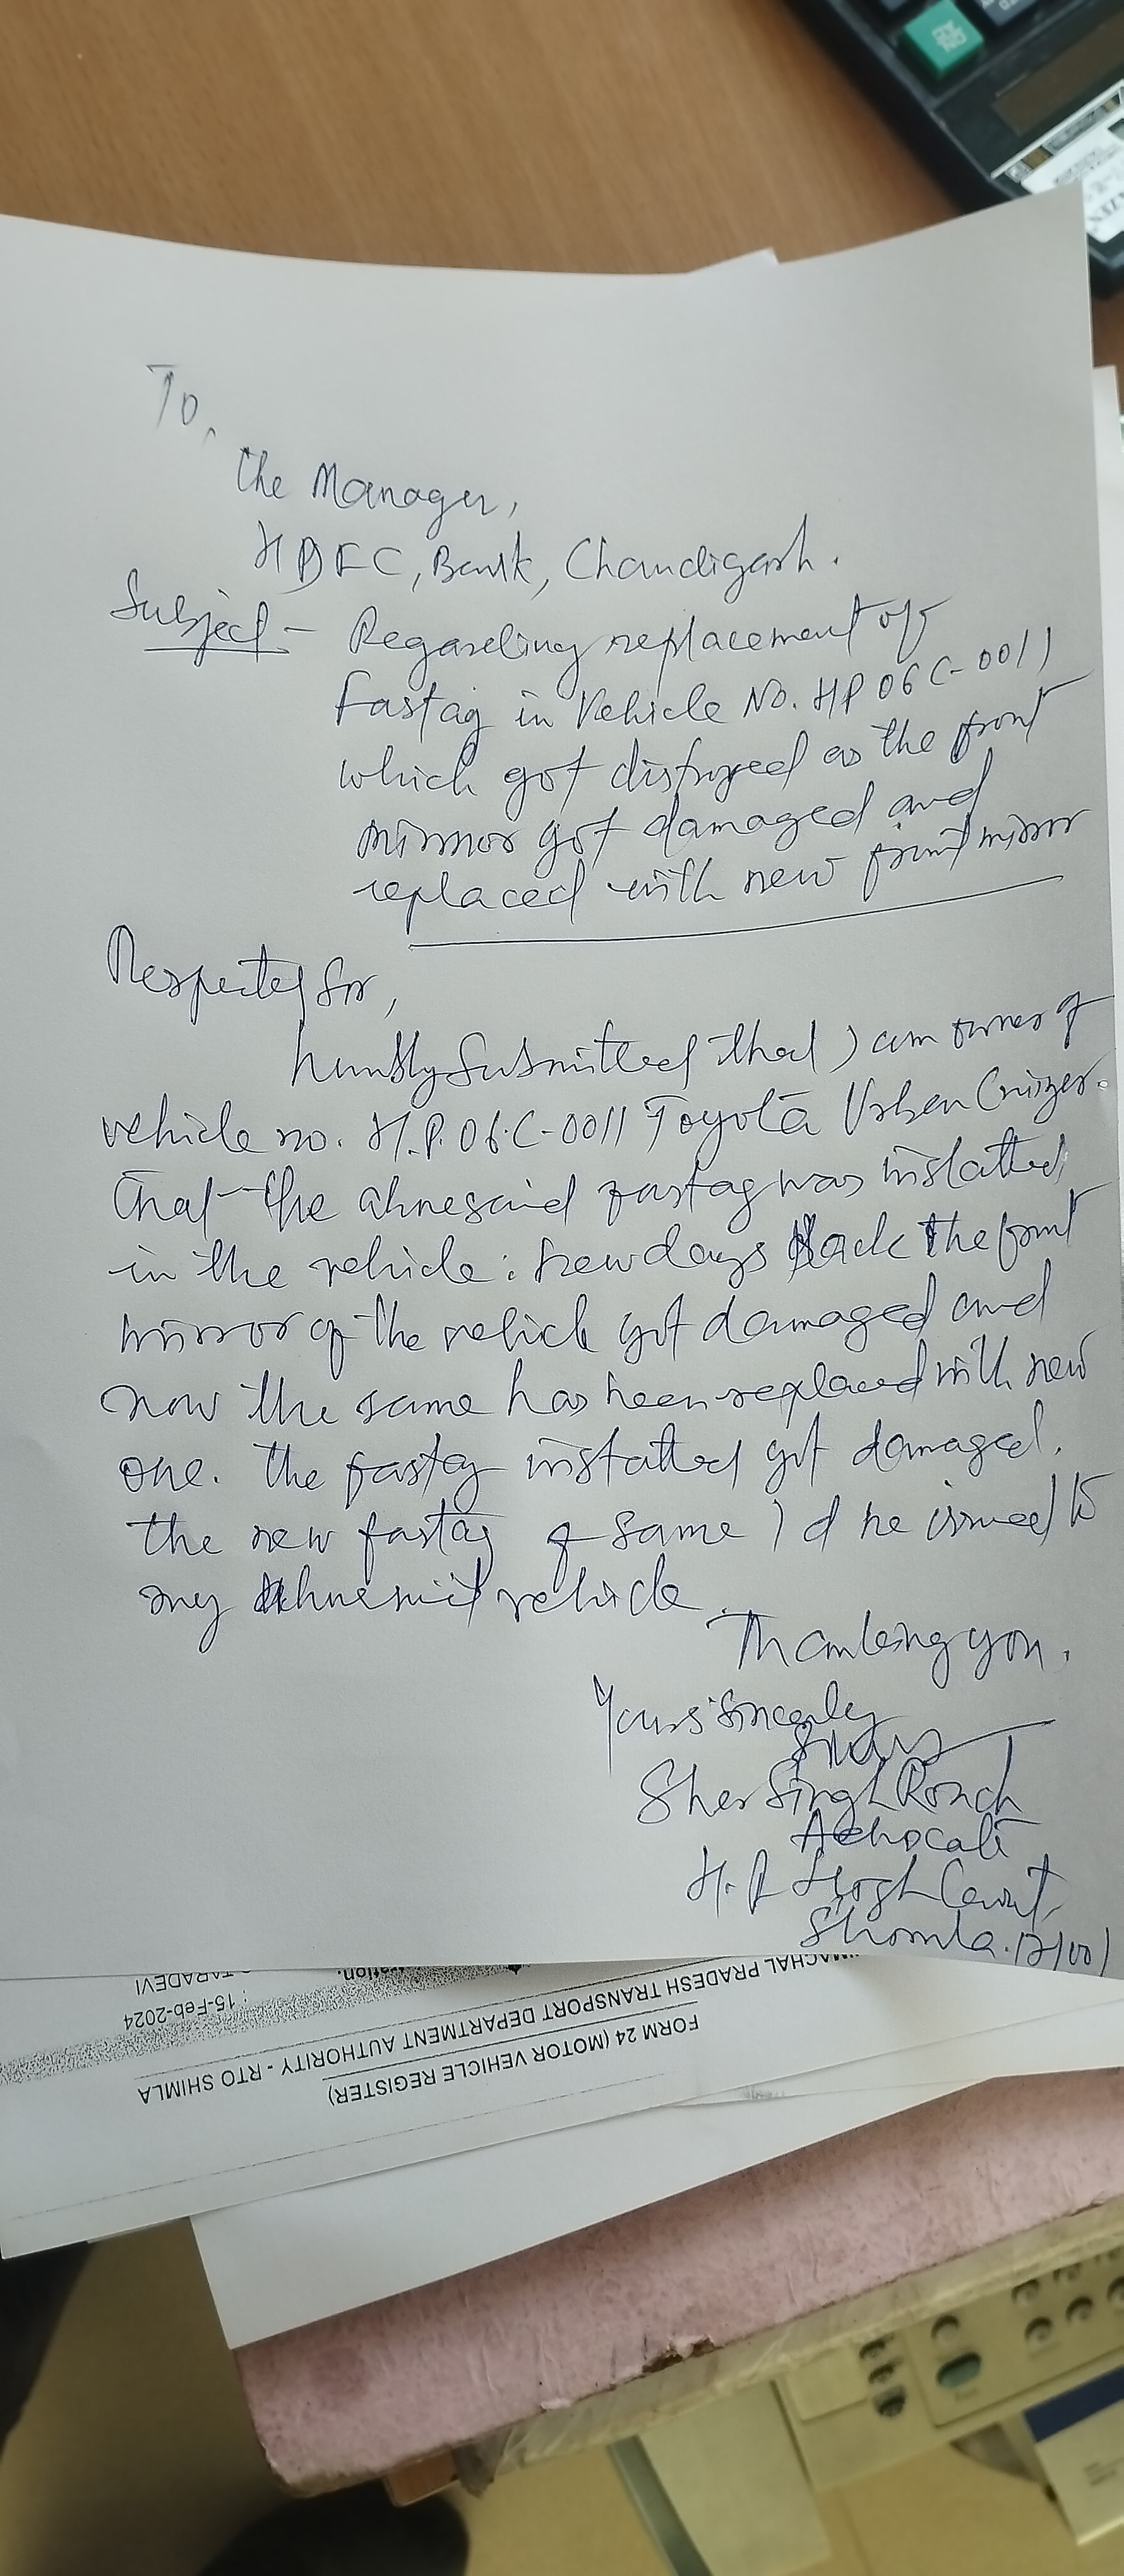 To,
The Manager,
HDFC, Bank, Chandigarh.
Subject - Regarding replacement of
Fastag in Vehicle No. HP 06 C-0011
which got distroyed as the front
mirror got damaged and
replaced with new front mirror
Respected Sir,
humbly Submitted that I am owner of
vehicle no. H.P. 06.C-0011 Toyota Urban Cruizer.
That the abovesaid fastag was installed
in the vehicle. few days back the front
mirror of the vehicle got damaged and
now the same has been replaced with new
one. The fastag installed got damaged.
the new fastag of same Id be issued to
my vehicle.
Thanking you.
Yours sincerely
Sher Singh
Advocate
H.P High Court,
Shimla.
TARADEVI
: 15-Feb-2024
HIMACHAL PRADESH TRANSPORT DEPARTMENT AUTHORITY - RTO SHIMLA
FORM 24 (MOTOR VEHICLE REGISTER)